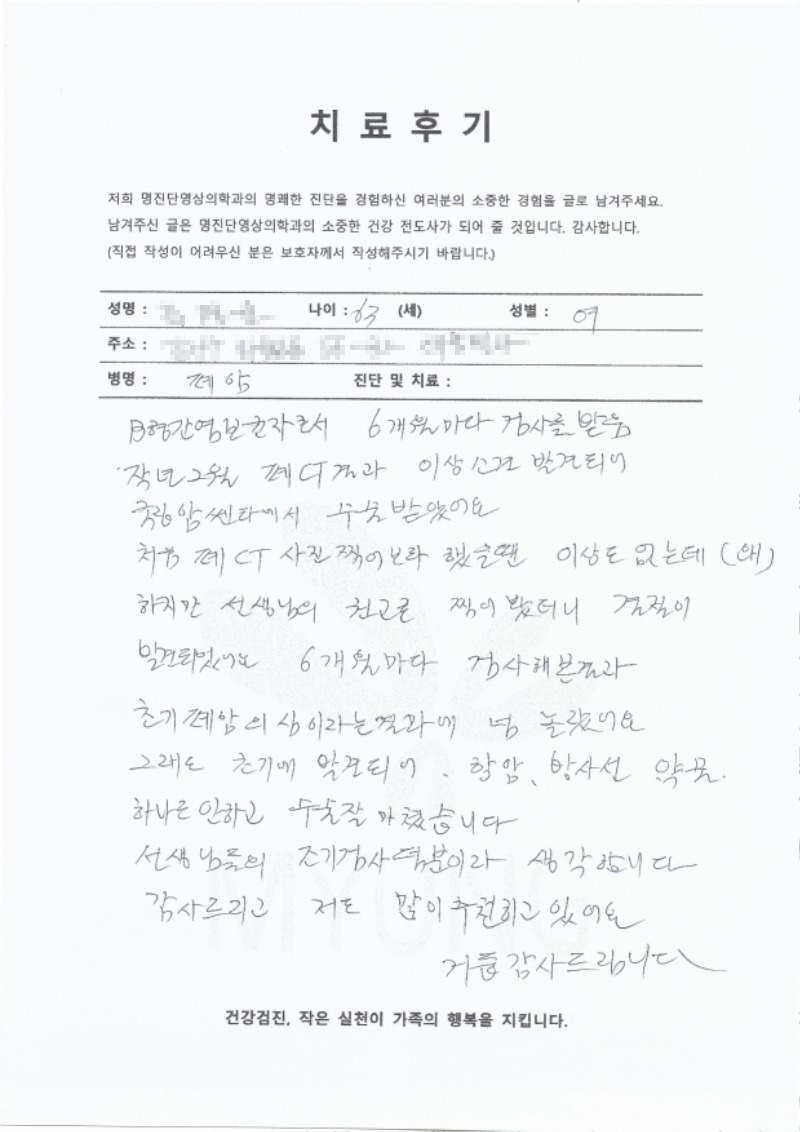 치료후기
저희 명진단영상의학과의 명쾌한 진단을 경험하신 여러분의 소중한 경험을 글로 남겨주세요.
남겨주신 글은 명진단영상의학과의 소중한 건강 전도사가 되어 줄 것입니다. 감사합니다.
(직접 작성이 어려우신 분은 보호자께서 작성해주시기 바랍니다.)
성명 : 나이 : 63 (세) 성별 : 여
주소 :
병명 : 폐암 진단 및 치료 :
B형간염보균자로서 6개월마다 검사를 받음
작년 2월 폐CT결과 이상소견 발견되어
국립암쎈타에서 수술받았어요
처음 폐CT 사진찍어보라 했을땐 이상도 없는데 (왜)
하지만 선생님의 권고로 찍어봤더니 결절이
발견되었어요 6개월마다 검사해본결과
초기폐암의심이라는결과에 넘 놀랐어요
그래도 초기에 발견되어. 항암, 방사선 약물.
하나도 안하고 수술잘 마쳤습니다
선생님들의 조기검사덕분이라 생각합니다
감사드리고 저도 많이추천하고 있어요
거듭감사드립니다
MYUNG
건강검진, 작은 실천이 가족의 행복을 지킵니다.